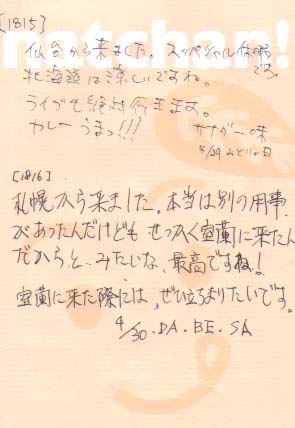 [1815]
natchan!
仙台から来ました。スッペシャル休暇です。
北海道は涼しいですね。
ライブも絶対行きます。
カレーうまっ!!!
サナダ一味
4/29 みどりの日
[1816]
札幌から来ました。本当は別の用事
があったんだけどもせっかく室蘭に来たん
だからと…みたいな、最高ですね!
室蘭に来た際には、ぜひ立ちよりたいです。
4/30.DA.BE.SA